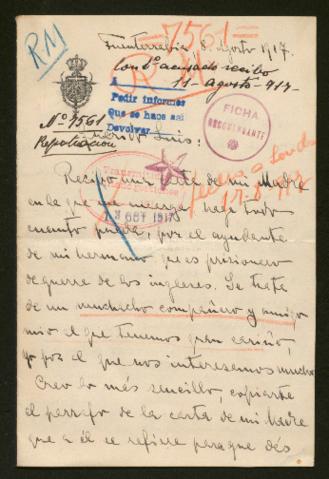 R11
=7561=
Fuenterrabía, 8, Agosto 1917.
Con Bº acusado recibo
11-agosto-917-
A
Pedir informes
Que se hace así
Devolver
FICHA
Nº 7561
Repatriación
Querido Luis:
Recibo una carta de mi Madre
en la que me encarga haga todo
cuanto pueda, por el ayudante
de mi hermano que es prisionero
de guerra de los ingleses. Se trata
de un muchacho compañero y amigo
mio el que tenemos gran cariño,
y por el que nos interesamos mucho.
Creo lo más sencillo, copiarte
el parrafo de la carta de mi Madre
que a él se refiere para que dés
13 OCT 1917